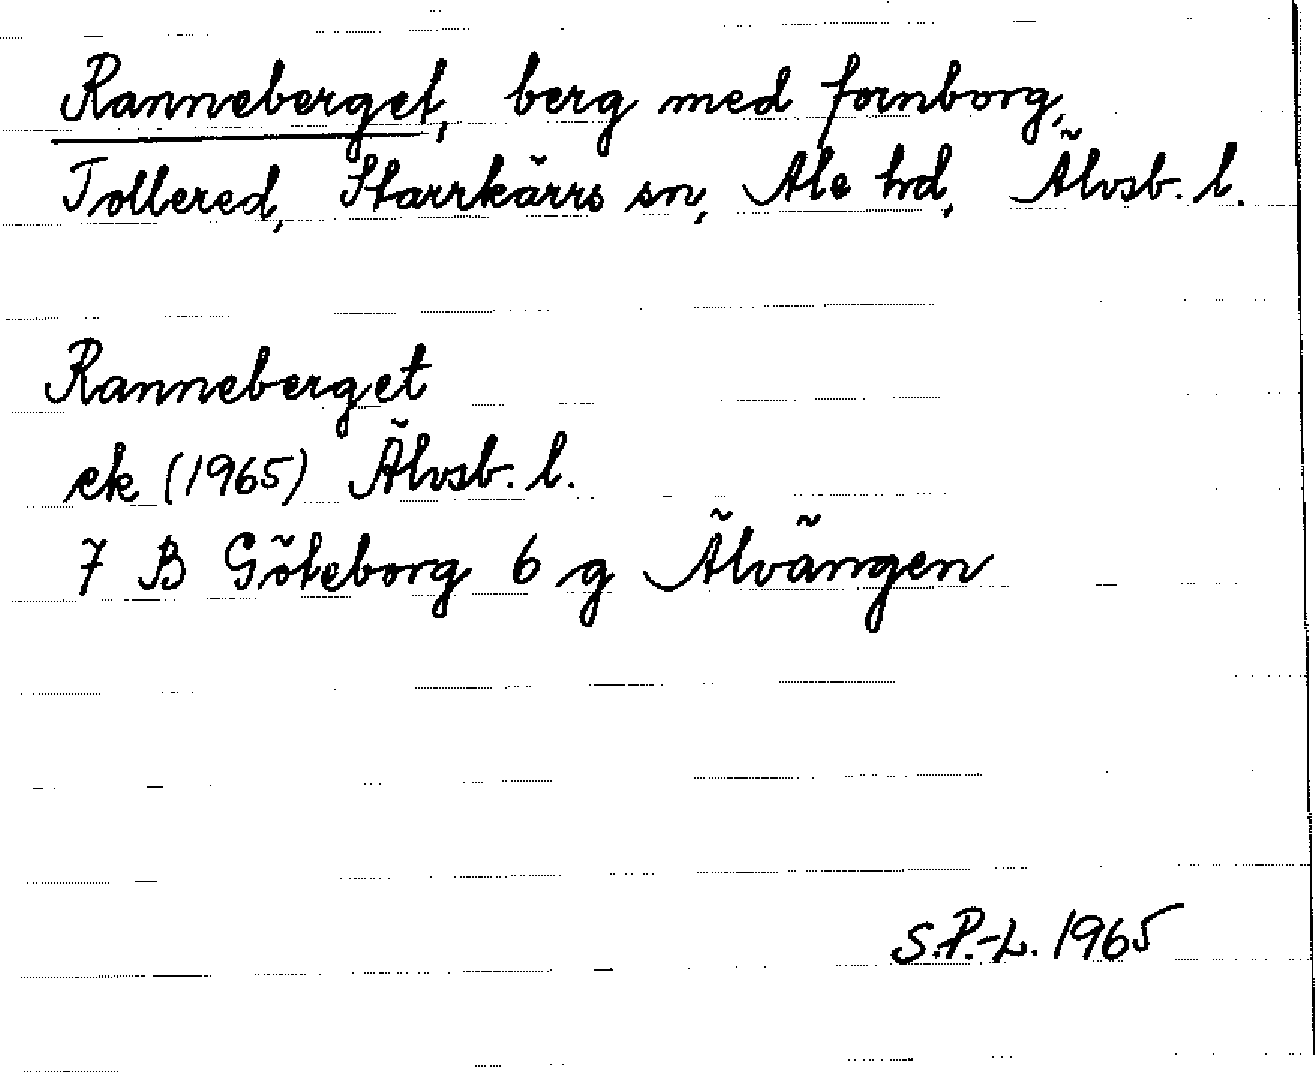 Ranneberget, berg med fornborg,
Tollered, Starrkärrs sn, Ale hd, Älvsb. l.
Ranneberget
ek (1965) Älvsb. l.
7 B Göteborg 6 g Älvängen
S.P.-L. 1965